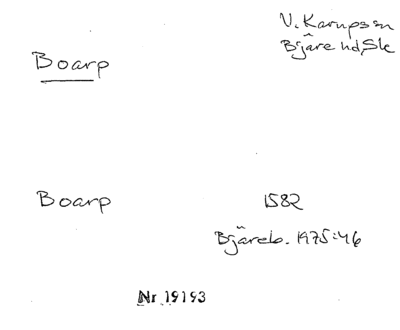 V. Karupssn
Bjäre hd, Sk
Boarp
Boarp 1582
Bjäreb. 1975:46
Nr 19193